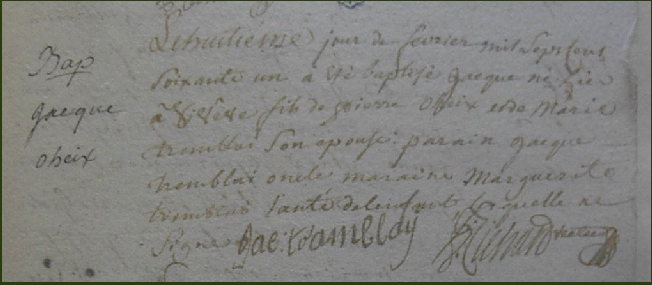 Bap
Jacque
oheix
Le huitieme jour de fevrier mil sept cent
soixante un a été baptisé Jacque né hier
à fils de pierre oheix et de Marie
tremblai son epouse. parain Jacque
tremblai oncle maraine Marguerite
tremblai tante de l'enfant laquelle ne
signe Jac. tramblay